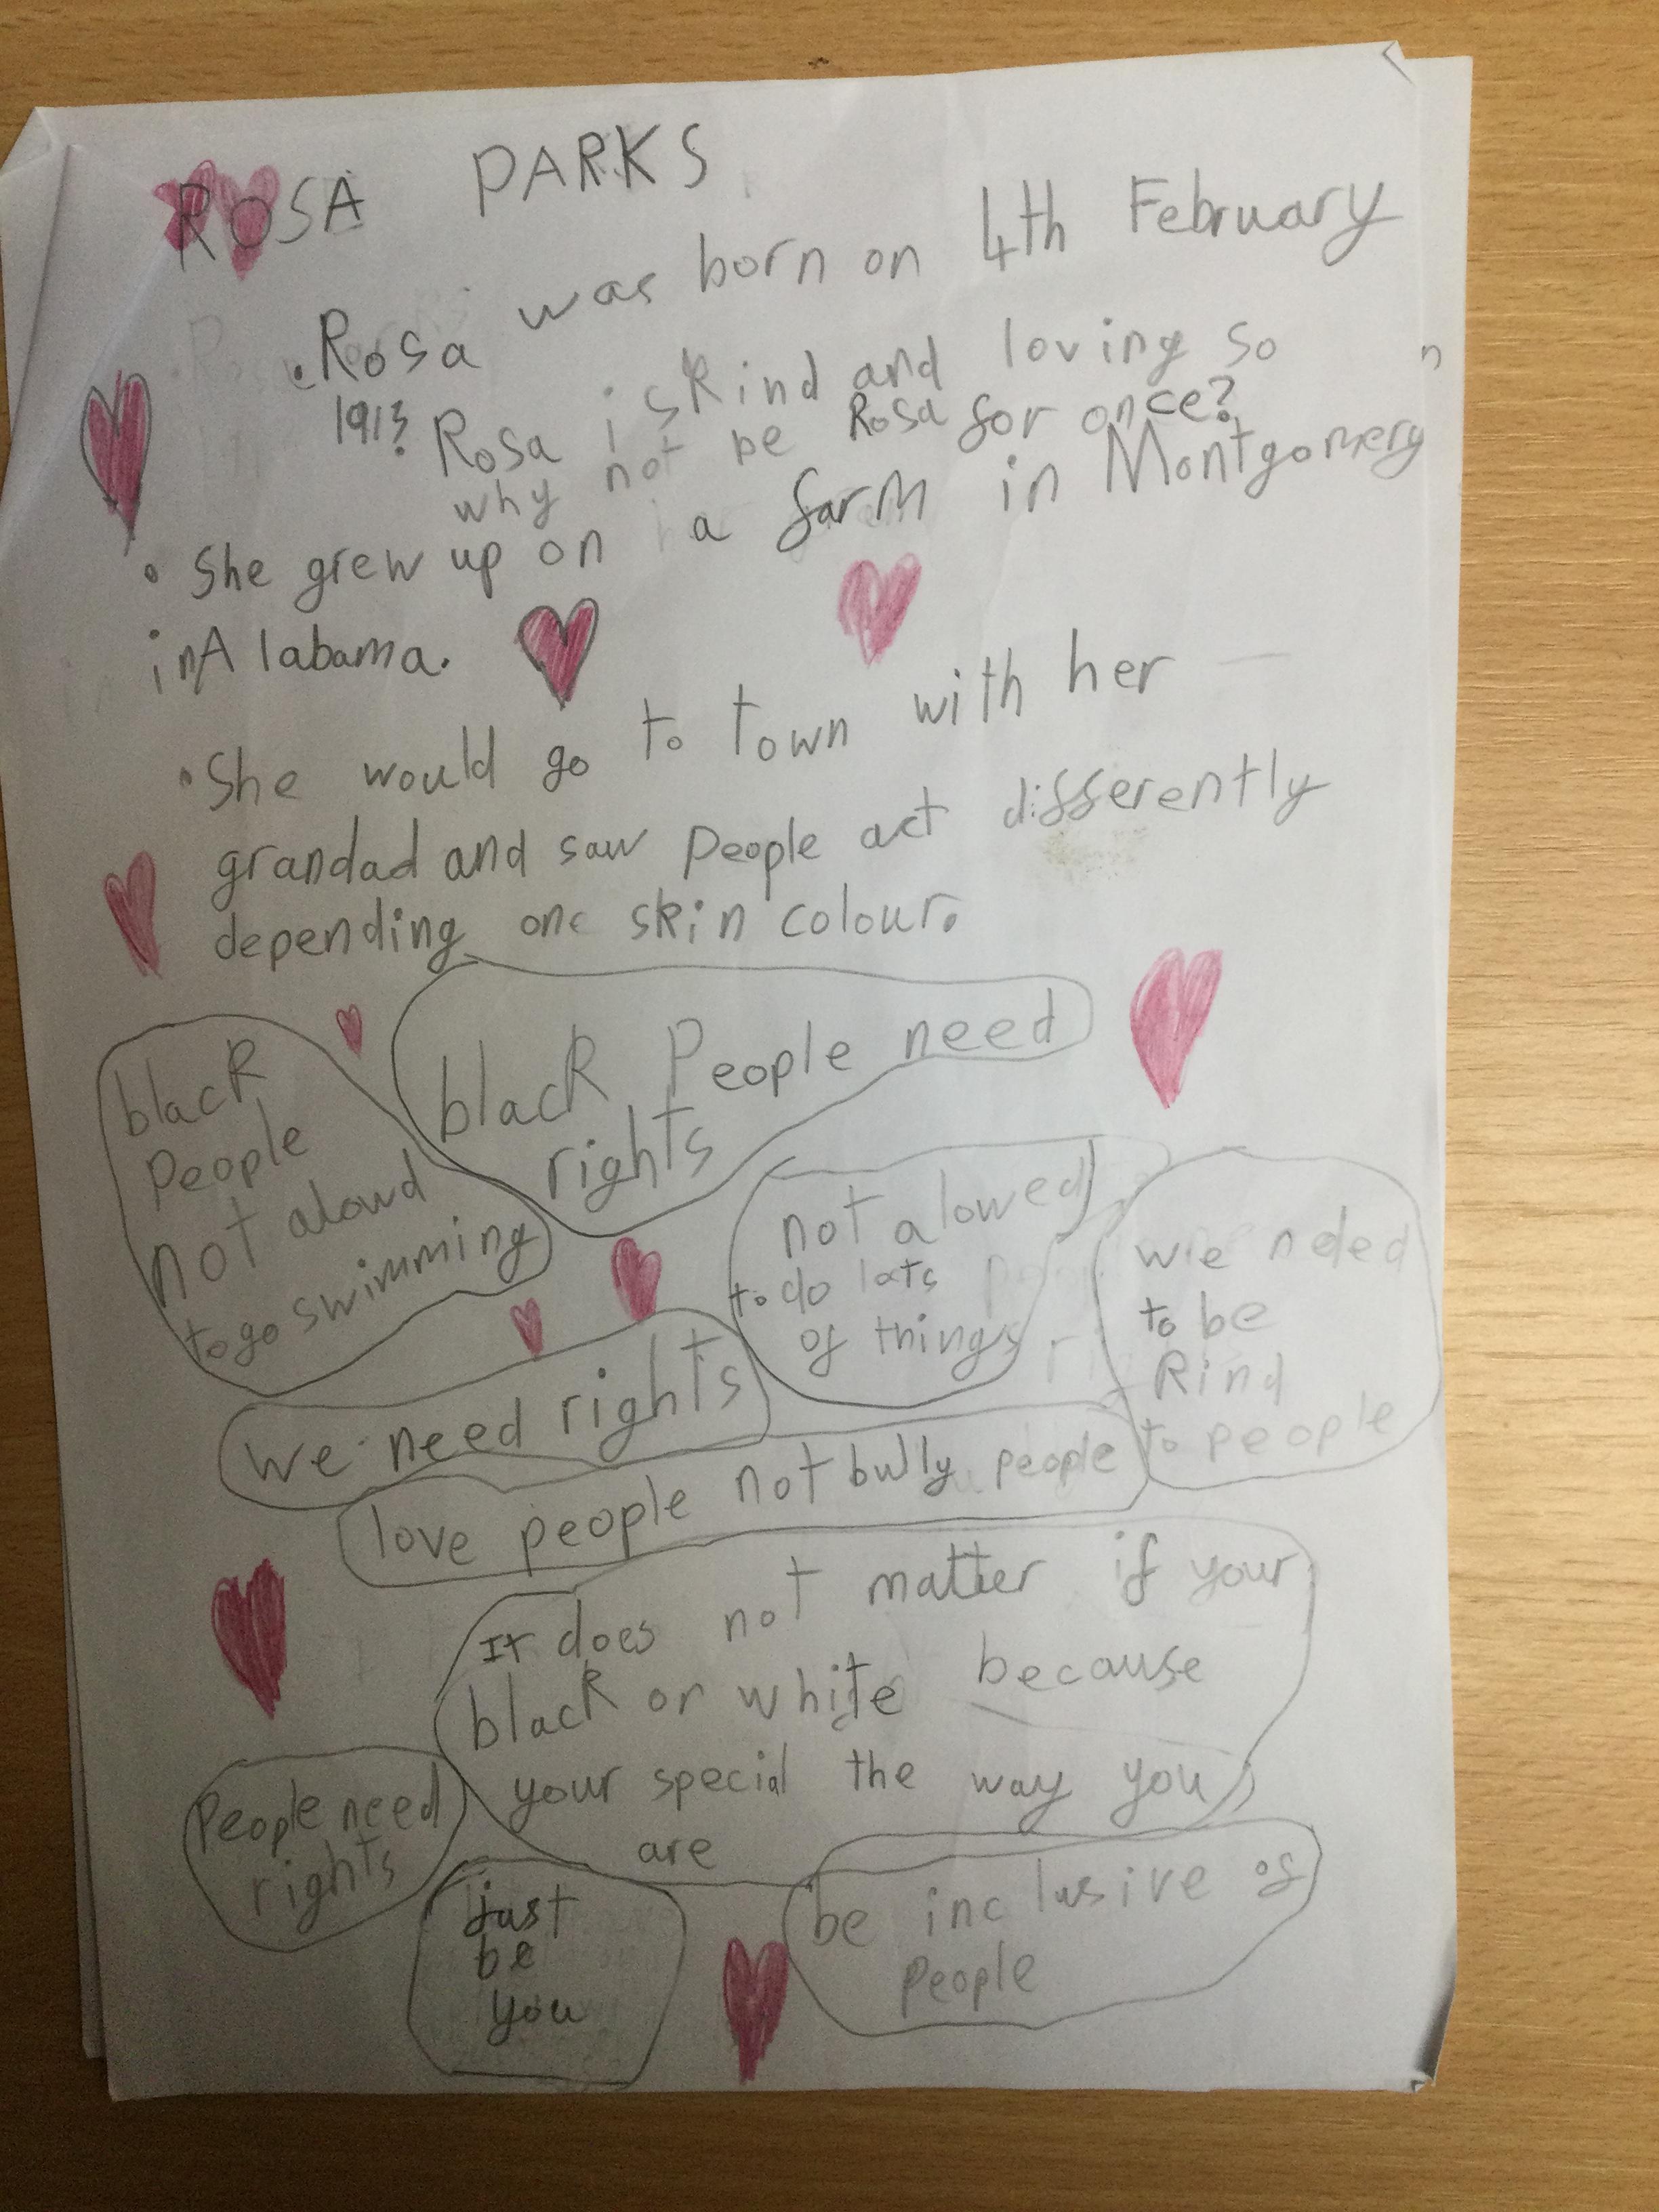 ROSA PARKS
. Rosa was born on 4th February
1913
Rosa is kind and loving so
why not be Rosa for once?
• She grew up on a farm in Montgomery
in Alabama.
• She would go to town with her
grandad and saw people act differently
depending one skin colour.
black People need
rights
black
People
not aloud
to go swimming
not alowed
to do lots
of things
we neded
to be
kind
to people
we need rights
love people not bully people
It does not matter if your
black or white because
your special the way you
are
People need
rights
just
be
you
be inclusive of
People